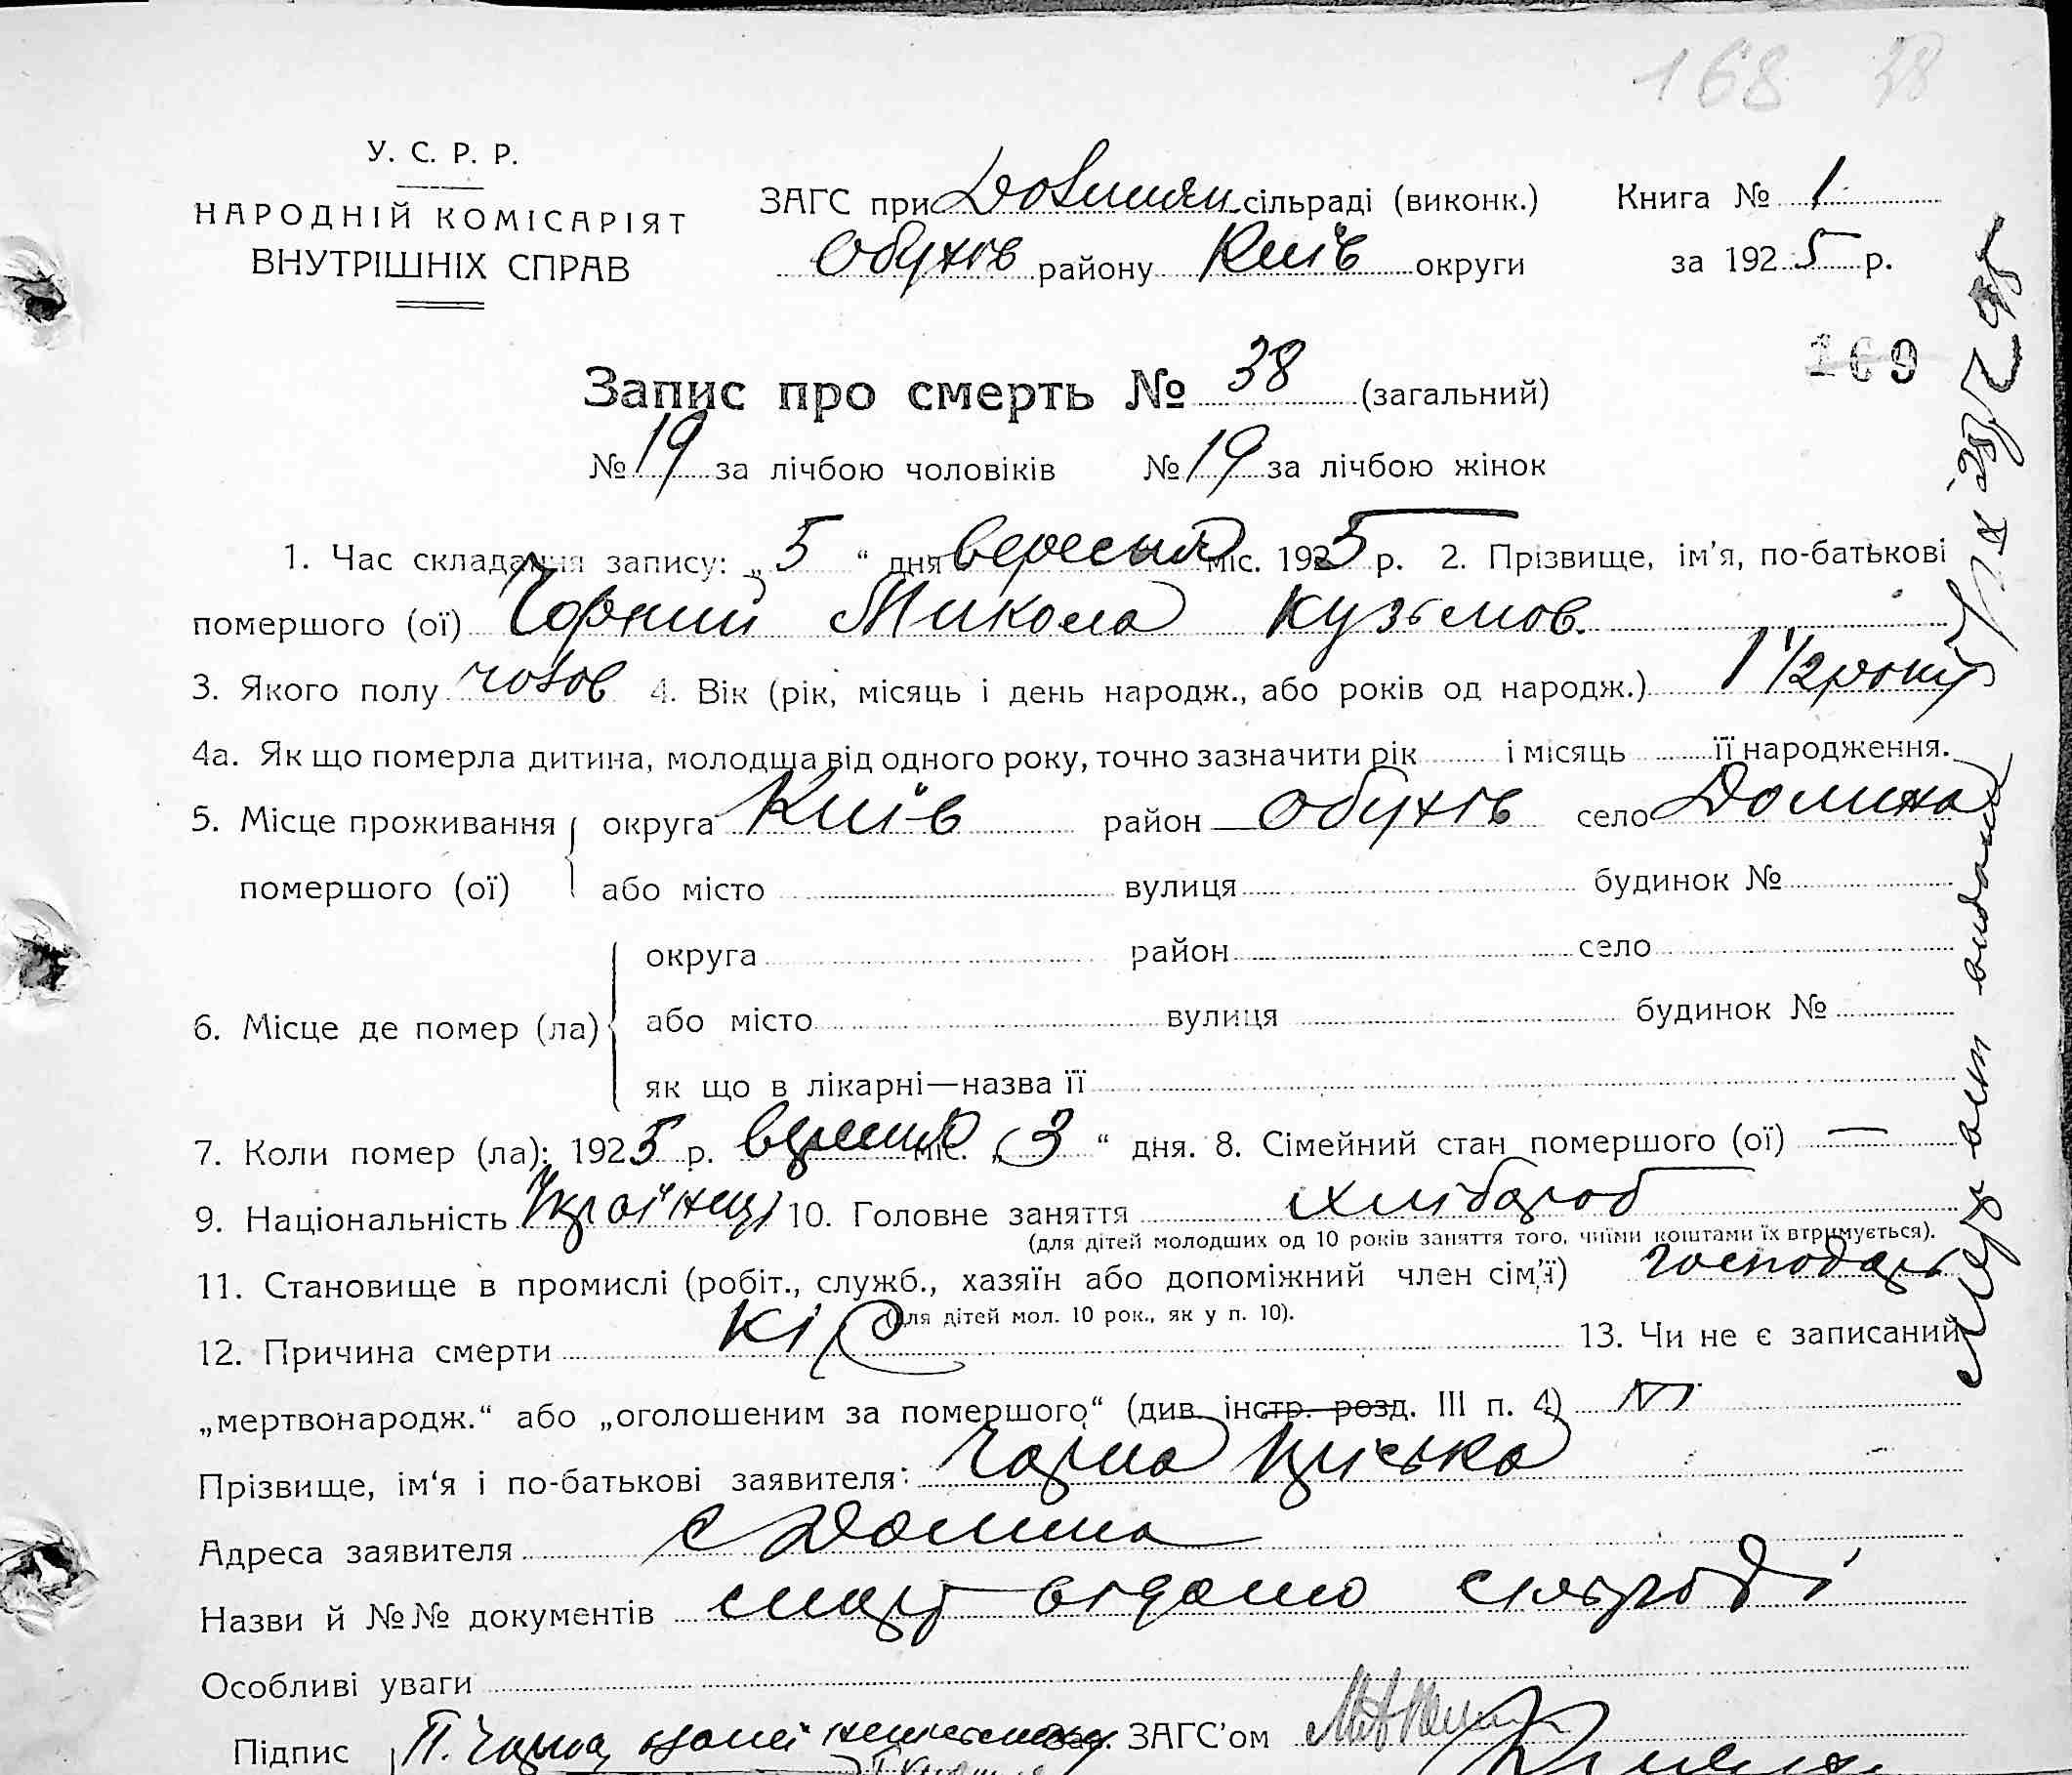 168 38
У. С. Р. Р.
НАРОДНІЙ КОМІСАРІЯТ
ВНУТРІШНІХ СПРАВ
ЗАГС при Долинян сільраді (виконк.)
Обухів району Київ округи
Книга № 1
за 1925 р.
169
Запис про смерть № 38 (загальний)
№ 19 за лічбою чоловіків № 19 за лічбою жінок
1. Час складання запису: „ 5 “ дня вересня міс. 1925 р. 2. Прізвище, ім’я, по-батькові
помершого (ої) Чорний Микола Кузьмов.
3. Якого полу чолов 4. Вік (рік, місяць і день народж., або років од народж.) 1 1/2 року
4а. Як що померла дитина, молодша від одного року, точно зазначити рік і місяць її народження.
5. Місце проживання округа Київ район Обухів село Долина
помершого (ої) або місто вулиця будинок №
округа район село
6. Місце де помер (ла) або місто вулиця будинок №
як що в лікарні—назва її
7. Коли помер (ла): 1925 р. вересня міс. „ 3 “ дня. 8. Сімейний стан помершого (ої) —
9. Національність Українці 10. Головне заняття хлібороб
(для дітей молодших од 10 років заняття того, чиїми коштами їх втримується).
11. Становище в промислі (робіт., служб., хазяїн або допоміжний член сім’ї) господарь
(для дітей мол. 10 рок., як у п. 10).
12. Причина смерти кір 13. Чи не є записаний
„мертвонародж.“ або „оголошеним за помершого“ (див. інстр. розд. III п. 4) Ні
Прізвище, ім‘я і по-батькові заявителя: Чорна Пріська
Адреса заявителя с Долина
Назви й №№ документів видано сільраді
Особливі уваги
Підпис П. Чорна Зав. ЗАГС’ом